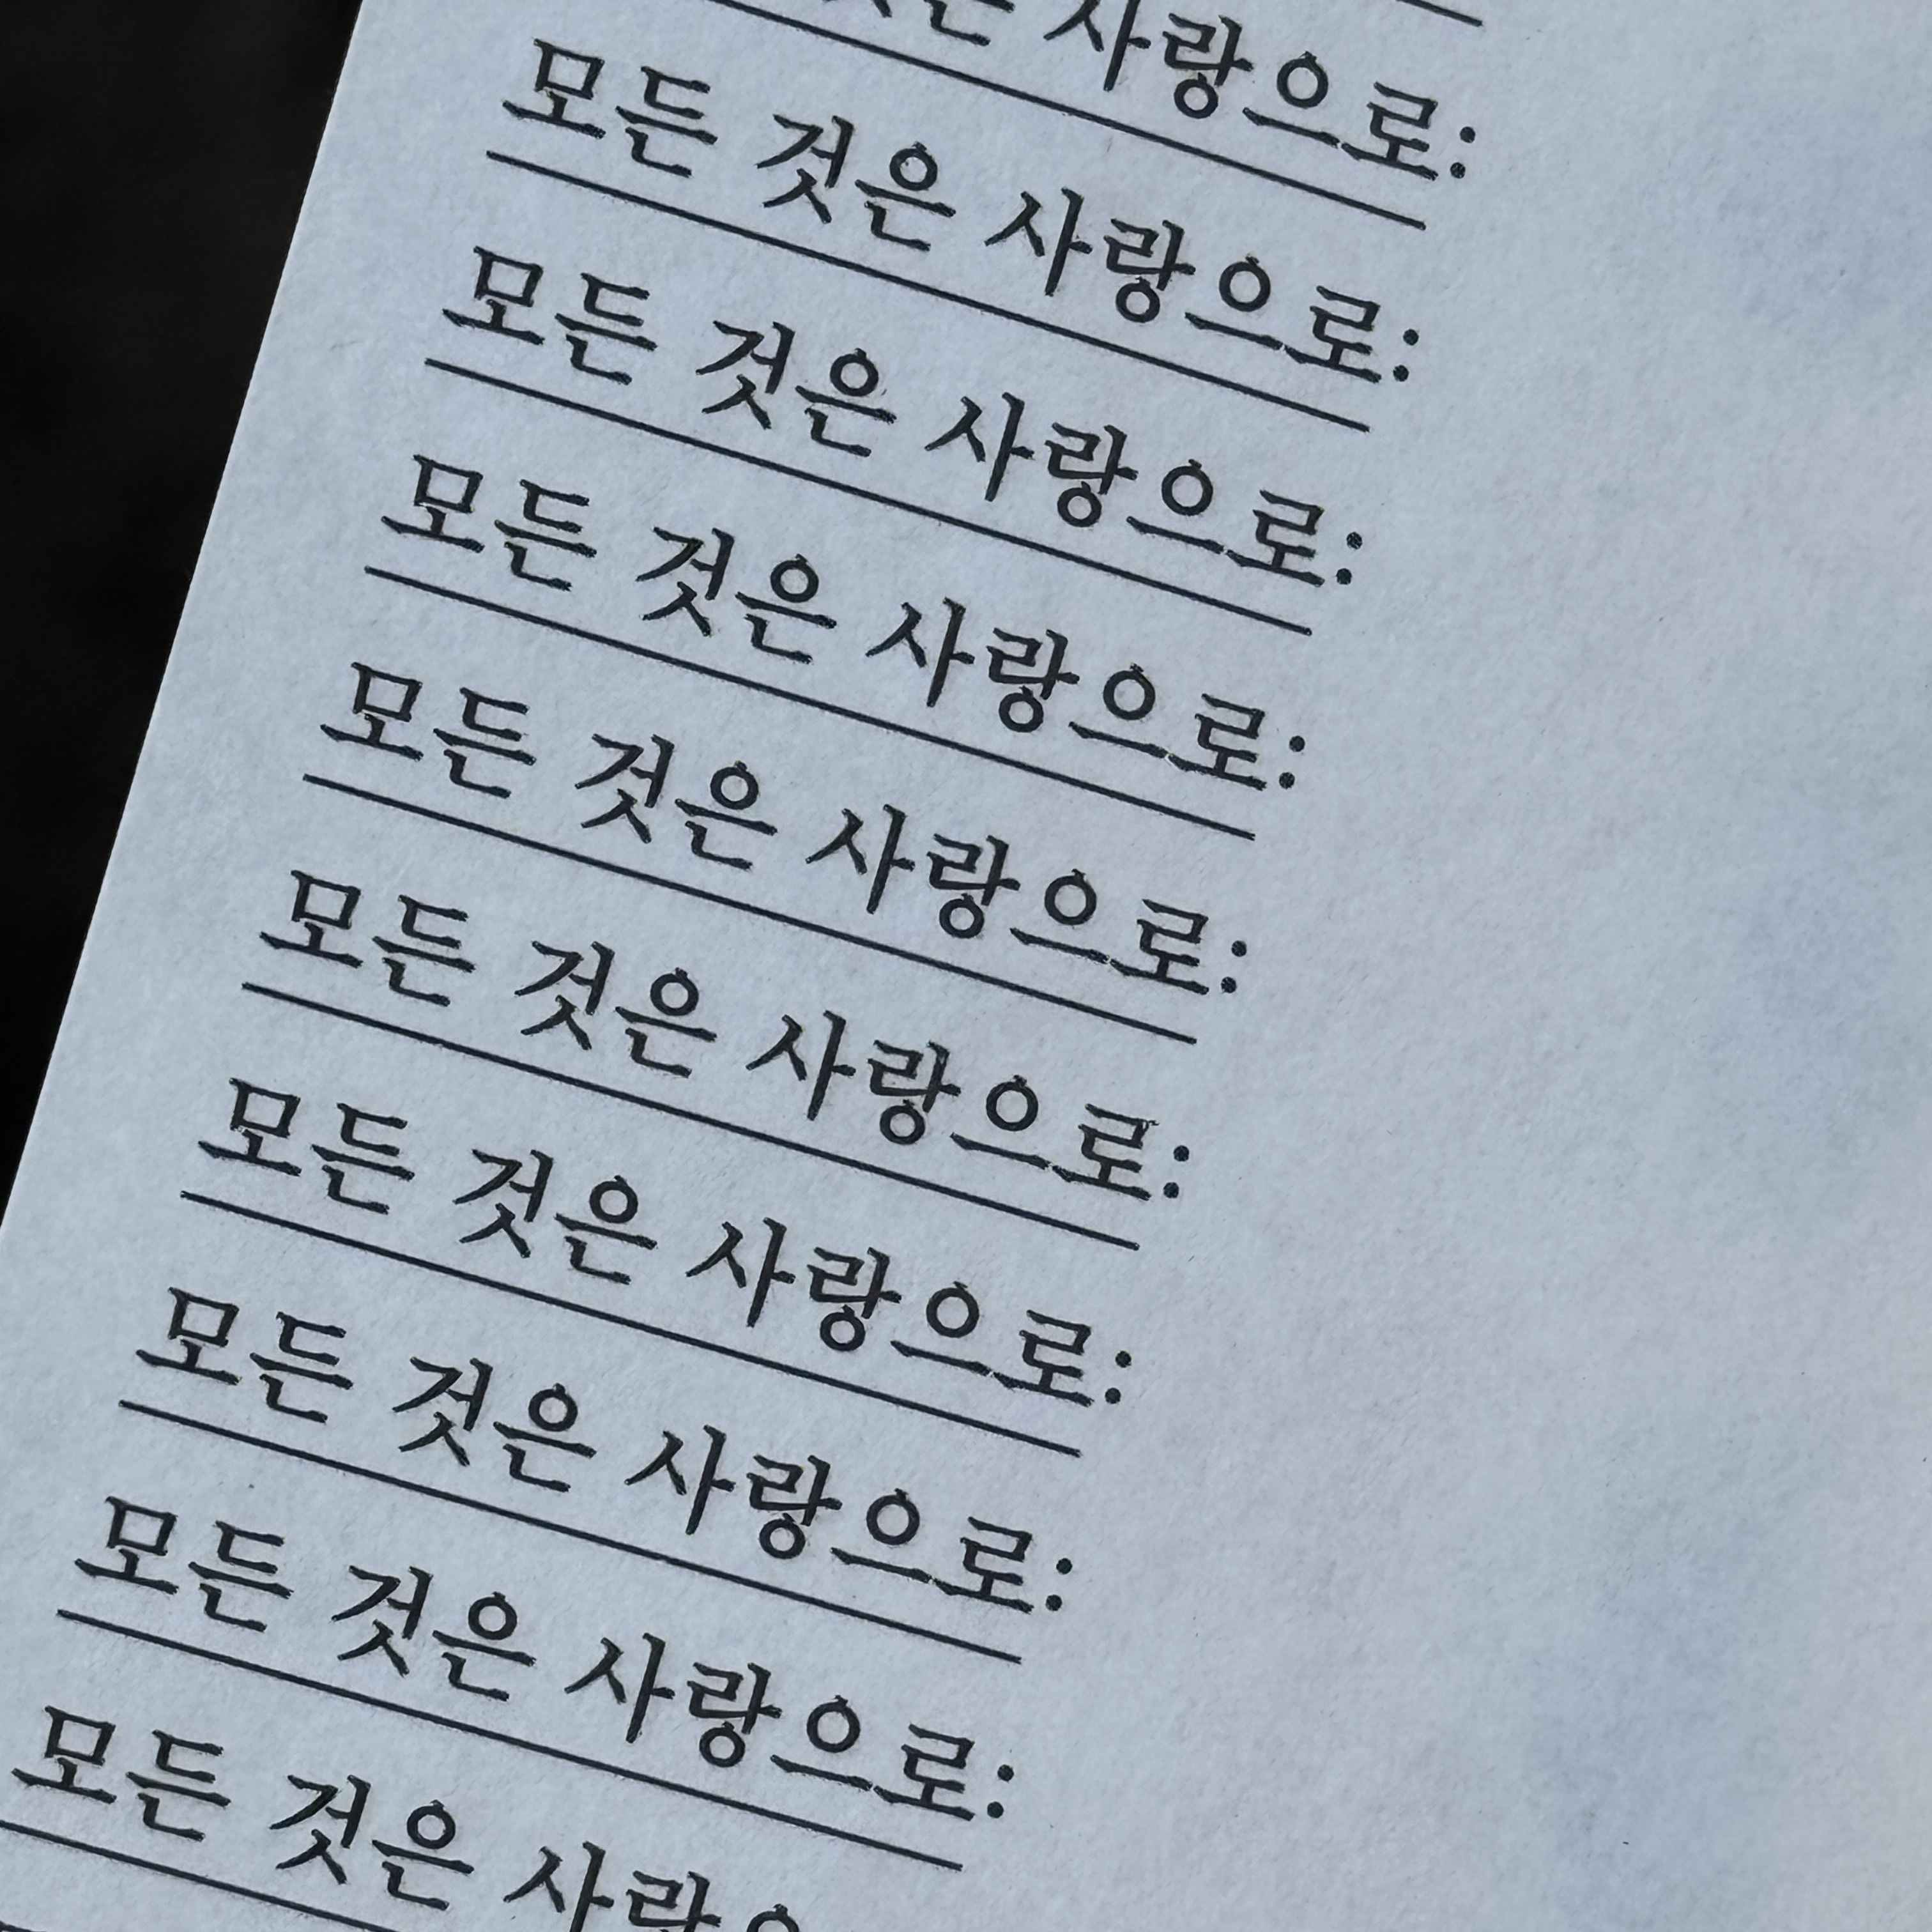 사랑으로:
모든 것은 사랑으로:
모든 것은 사랑으로:
모든 것은 사랑으로:
모든 것은 사랑으로:
모든 것은 사랑으로:
모든 것은 사랑으로:
모든 것은 사랑으로:
모든 것은 사랑으로:
모든 것은 사랑